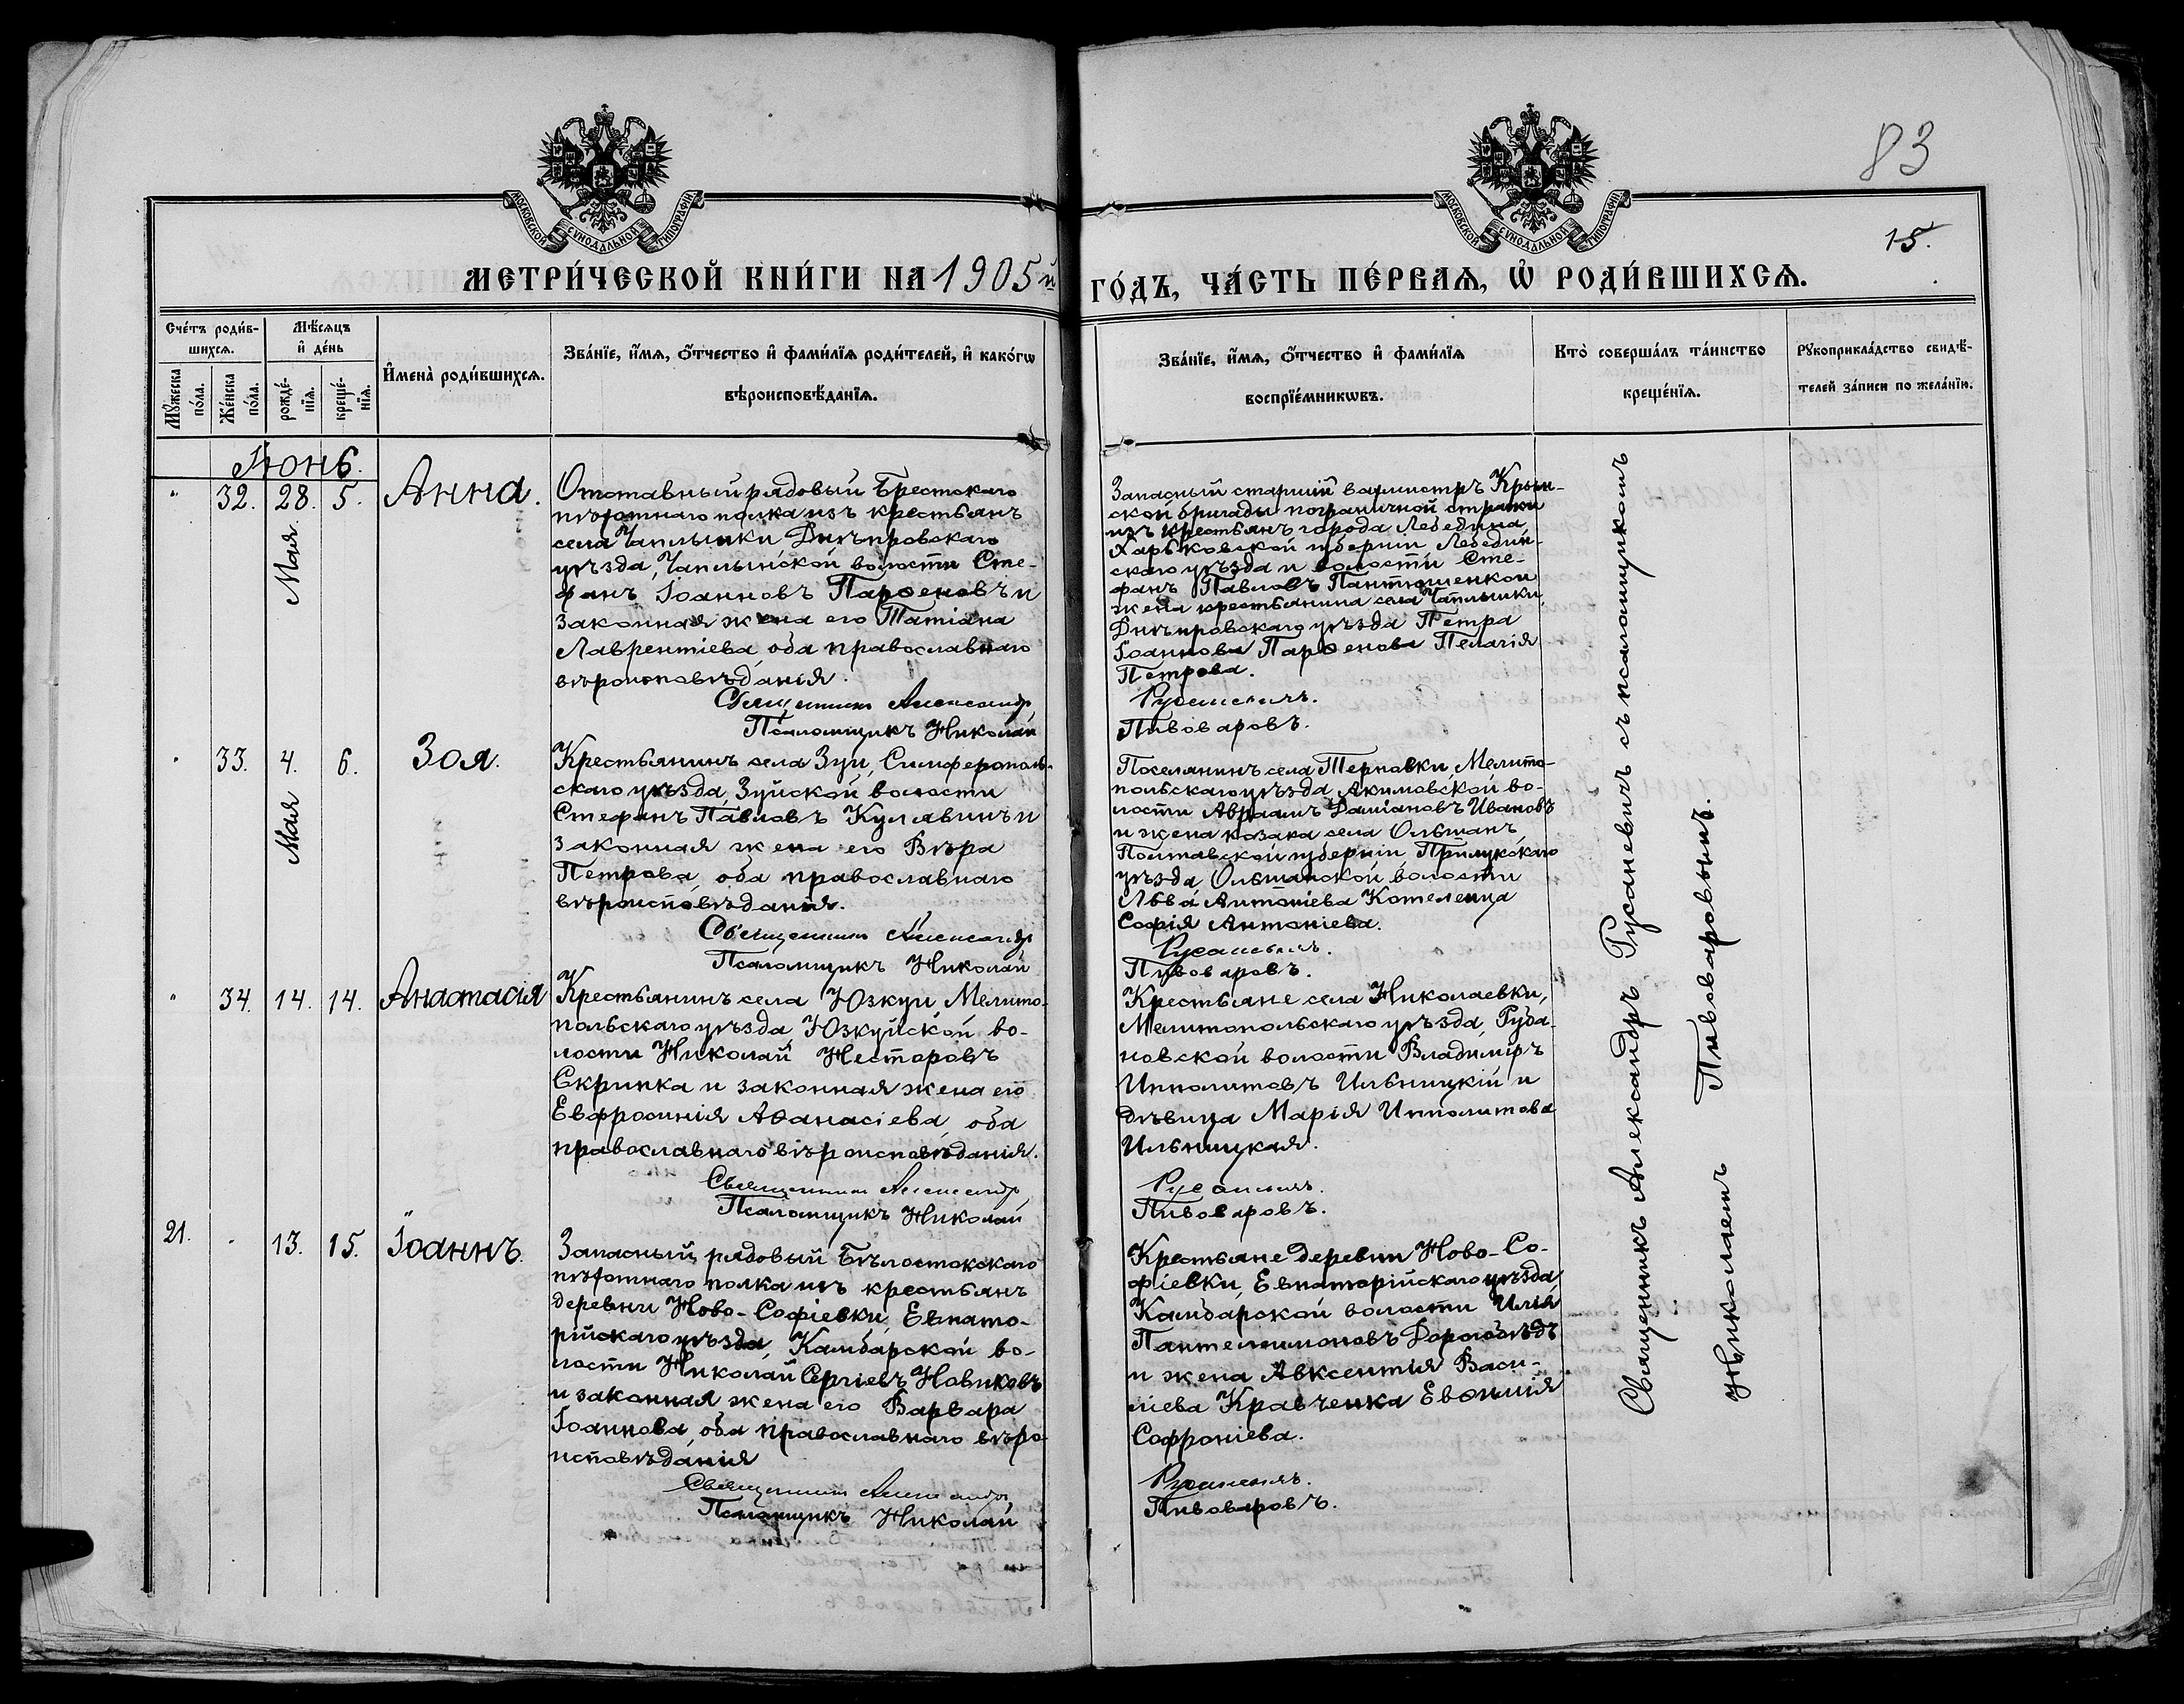 83
15.
МОСКОВСКОЙ СѴНОДАЛЬНОЙ ТИПОГРАФІИ
МОСКОВСКОЙ СѴНОДАЛЬНОЙ ТИПОГРАФІИ
МЕТРИ́ЧЕСКОЙ КНИ́ГИ НА 1905й ГО́ДЪ, ЧА́СТЬ ПЕ́РВАѦ, Ѡ҆ РОДИ́ВШИХСѦ.
Сче́тъ роди́в-
шихсѧ.
Мѣ́сѧцъ
и҆ де́нь
Мꙋ́жеска
по́ла.
Же́нска
по́ла.
рожде́-
нїѧ.
креще́-
нїѧ.
И҆мена̀ роди́вшихсѧ.
Зва́нїе, и҆́мѧ, ѻ҆́тчество и҆ фами́лїѧ роди́телей, и҆ како́гѡ
вѣроисповѣ́данїѧ.
Зва́нїе, и҆́мѧ, ѻ҆́тчество и҆ фами́лїѧ
воспрїе́мникѡвъ.
Кто̀ соверша́лъ та́инство
креще́нїѧ.
Рꙋкоприкла́дство свидѣ́-
телей за́писи по жела́нїю.
Іюнь.
" 32. 28. 5. Анна.
Мая
Отставный рядовый Брестскаго
пѣхотнаго полка изъ крестьянъ
села Чаплынки Днѣпровскаго
уѣзда, Чаплынской волости Сте-
фанъ Іоанновъ Парѳеновъ и
законная жена его Татіана
Лаврентіева, оба православнаго
вѣроисповѣданія.
Священникъ Александръ
Псаломщикъ Николай
Запасный старшій вахмистръ Крым-
ской бригады пограничной стражи
изъ крестьянъ города Лебедина,
Харьковской губерніи, Лебедин-
скаго уѣзда и волости Сте-
фанъ Павловъ Пантюшенко и
жена крестьянина села Чаплынки,
Днѣпровскаго уѣзда Петра
Іоаннова Парѳенова Пелагія
Петрова.
Русаневичъ.
Пивоваровъ.
" 33. 4. 6. Зоя.
Мая
Крестьянинъ села Зуи, Симферополь-
скаго уѣзда, Зуйской волости
Стефанъ Павловъ Кулявинъ и
законная жена его Вѣра
Петрова, оба православнаго
вѣроисповѣданія.
Священникъ Александръ
Псаломщикъ Николай
Поселянинъ села Терновки, Мелито-
польскаго уѣзда, Акимовской во-
лости Авраамъ Даміановъ Ивановъ
и жена козака села Ольшанъ,
Полтавской губерніи, Прилукскаго
уѣзда, Ольшанской волости
Льва Антоніева Котеленца
Софія Антоніева.
Русаневичъ.
Пивоваровъ.
" 34. 14. 14. Анастасія
Крестьянинъ села Юзкуи, Мелито-
польскаго уѣзда, Юзкуйской во-
лости Николай Несторовъ
Скрипка и законная жена его
Евфросинія Аѳанасіева, оба
православнаго вѣроисповѣданія.
Священникъ Александръ
Псаломщикъ Николай
Крестьяне села Николаевки,
Мелитопольскаго уѣзда, Руба-
новской волости Владиміръ
Ипполитовъ Ильницкій и
дѣвица Марія Ипполитова
Ильницкая.
Русаневичъ.
Пивоваровъ.
21. " 13. 15. Іоаннъ.
Запасный рядовый Бѣлостокскаго
пѣхотнаго полка изъ крестьянъ
деревни Ново-Софіевки, Евпато-
рійскаго уѣзда, Камбарской во-
лости Николай Сергіевъ Новиковъ
и законная жена его Варвара
Іоаннова, оба православнаго вѣро-
исповѣданія
Священникъ Александръ
Псаломщикъ Николай
Крестьяне деревни Ново-Со-
фіевки, Евпаторійскаго уѣзда
Камбарской волости Илія
Пантелеимоновъ Дармоѣдъ
и жена Авксентія Васи-
ліева Кравченка Евѳимія
Софроніева.
Русаневичъ.
Пивоваровъ.
Священникъ Александръ Русаневичъ съ псаломщикомъ
Николаемъ Пивоваровымъ.